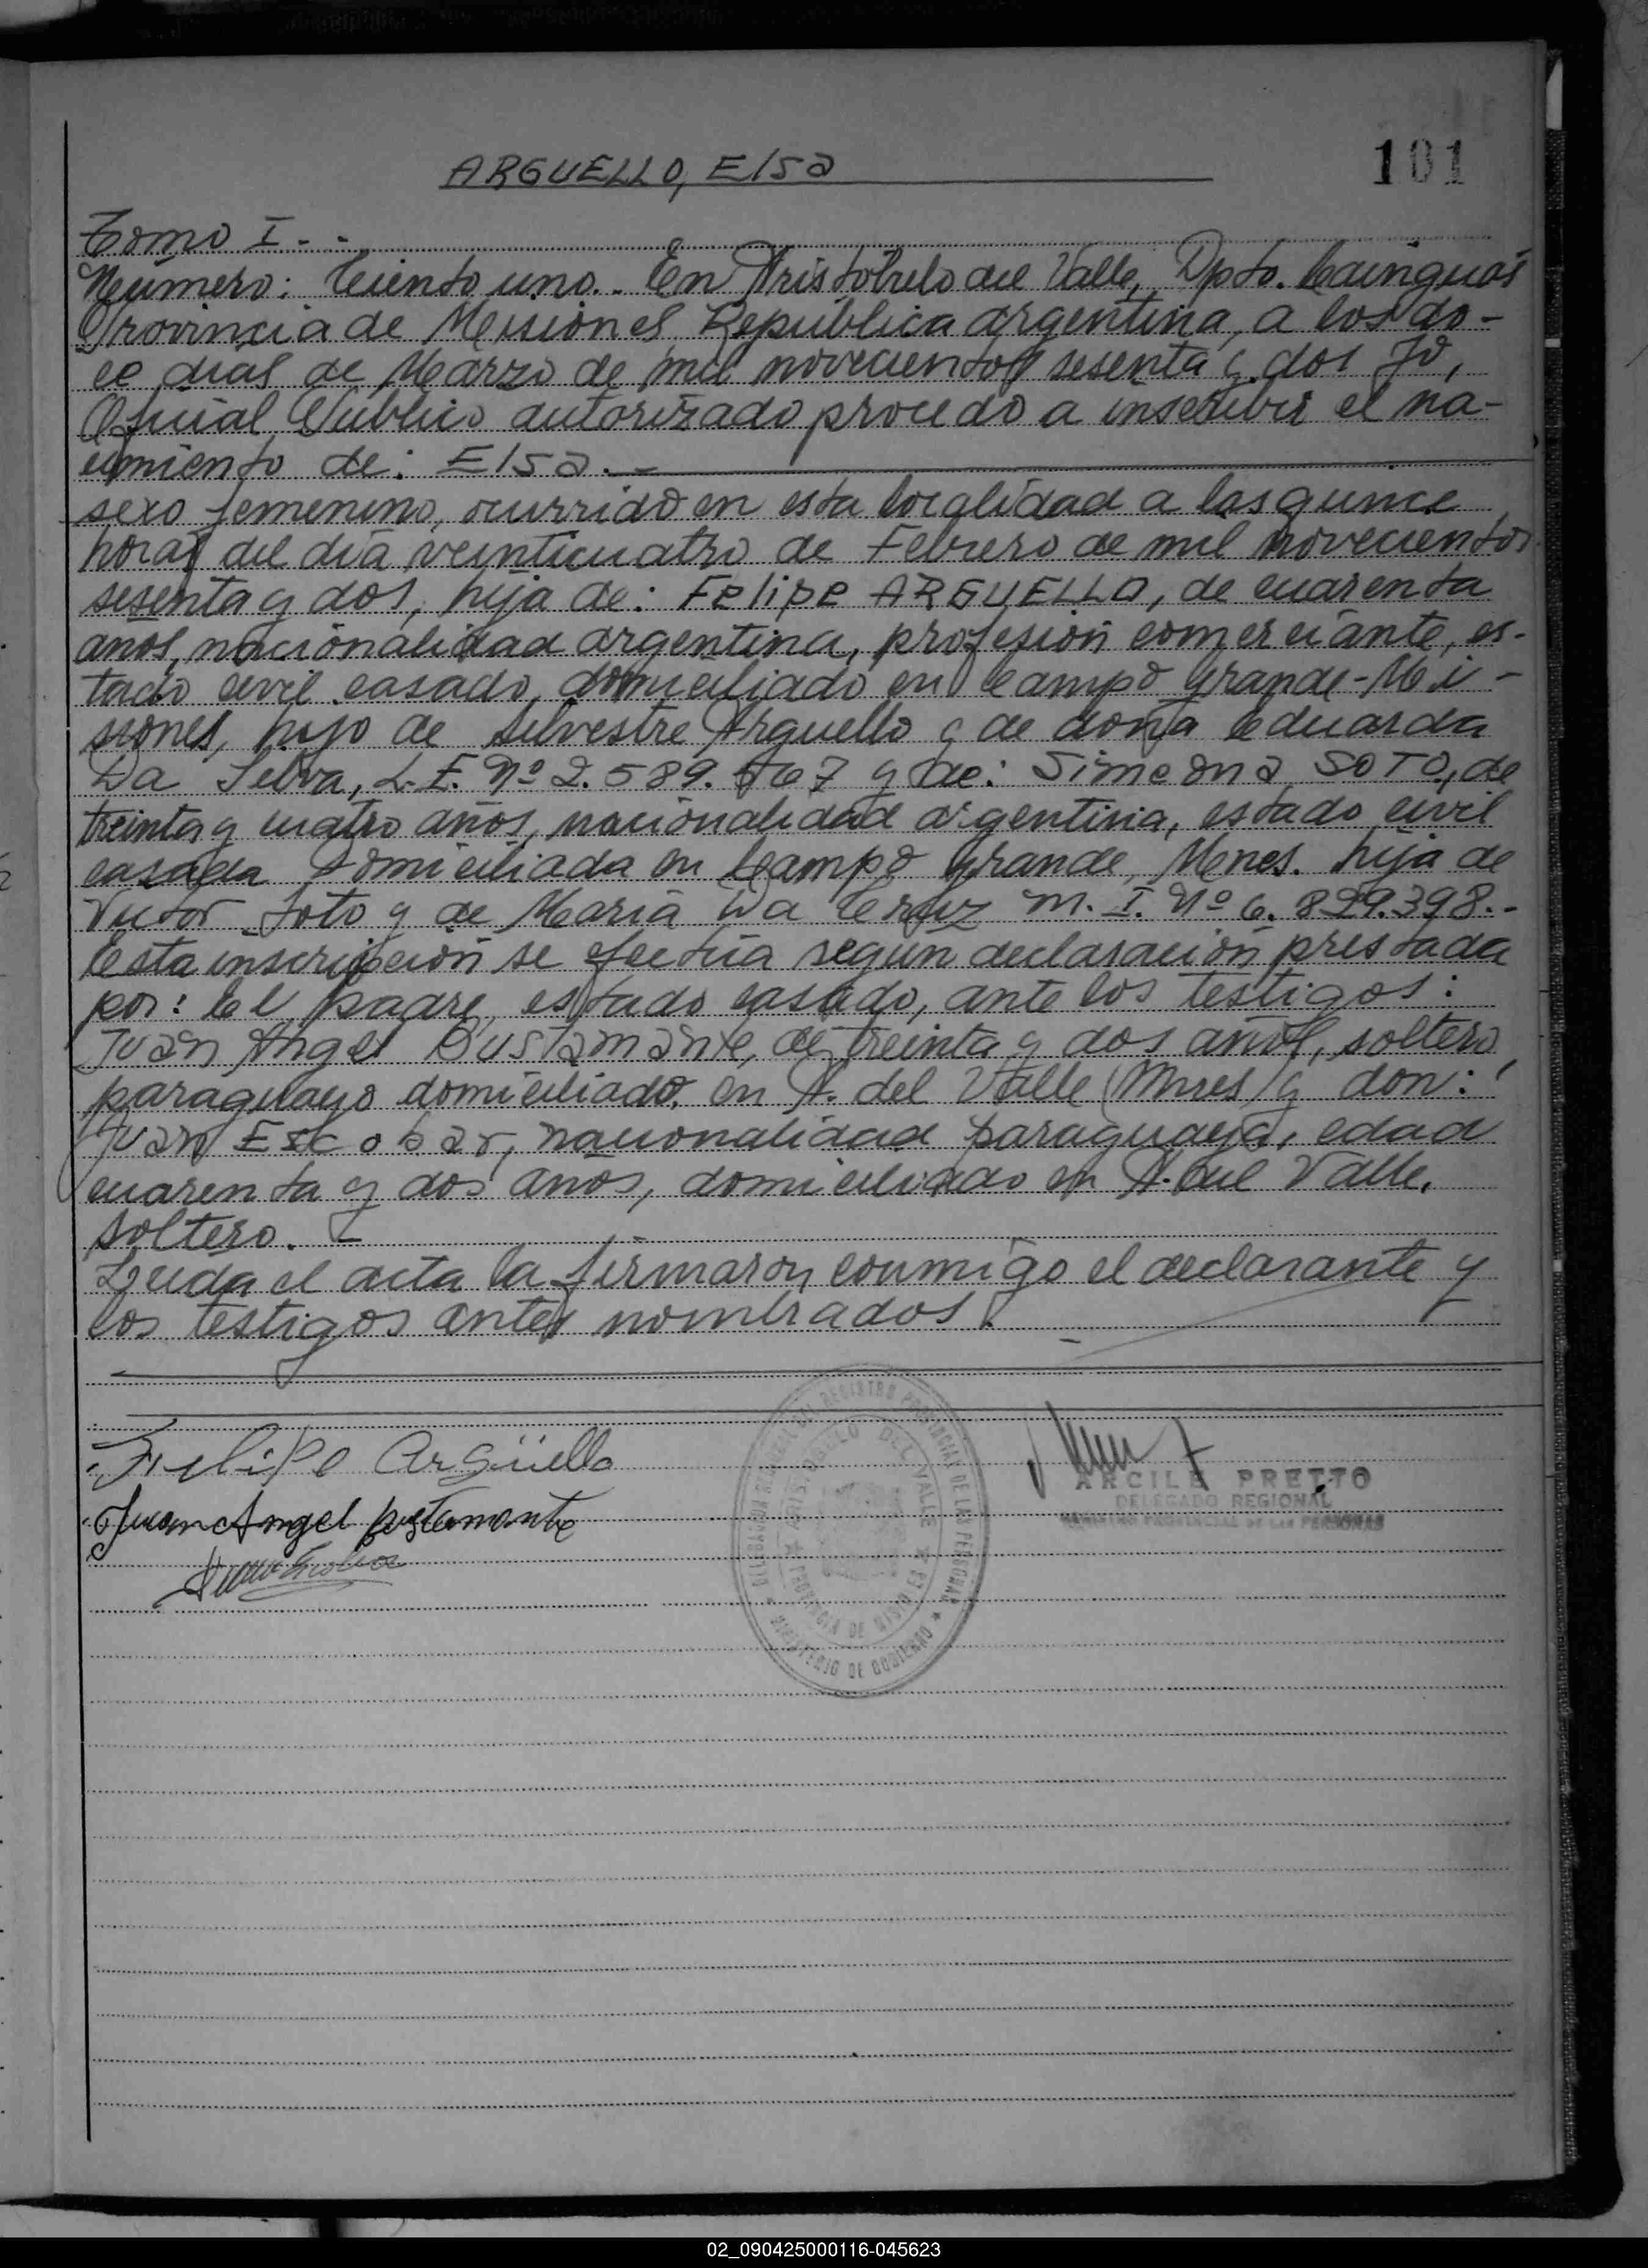 ARGUELLO, Elsa
101
Tomo I. -
Número: Ciento uno.. En Aristóbulo del Valle, Dpto. Cainguás
Provincia de Misiones, República argentina, a los do-
ce días de Marzo de mil novecientos sesenta y dos Yo,
Oficial Público autorizado procedo a inscribir el na-
cimiento de: Elsa.-
sexo femenino, ocurrido en esta localidad a las quince
horas del día veinticuatro de Febrero de mil novecientos
sesenta y dos, hija de: Felipe ARGUELLO, de cuarenta
años, nacionalidad argentina, profesión comerciante, es-
tado civil casado, domiciliado en Campo Grande-Mi-
siones, hijo de Silvestre Arguello y de doña Eduarda
Da Silva, L.E. Nº 2.589. y de: Simeona SOTO, de
treinta y cuatro años, nacionalidad argentina, estado civil
casada domiciliada en Campo Grande, Mnes. hija de
Victor Soto y de María Da Cruz M.I. Nº 6.829.398.-
Esta inscripción se efectúa según declaración prestada
por: El padre, estado casado, ante los testigos:
Juan Angel Bustamante, de treinta y dos años, soltero,
paraguayo domiciliado en A. del Valle (Mnes) y don:
Juan Escobar, nacionalidad paraguaya, edad
cuarenta y dos años, domiciliado en A. del Valle,
soltero. -
Leída el acta la firmaron conmigo el declarante y
los testigos antes nombrados.
Felipe Argüello
Juan Angel Bustamante
Juan Escobar
DELEGACION REGIONAL DEL REGISTRO PROVINCIAL DE LAS PERSONAS
ARISTOBULO DEL VALLE
PROVINCIA DE MISIONES
MINISTERIO DE GOBIERNO
ARCILE PRETTO
DELEGADO REGIONAL
REGISTRO PROVINCIAL DE LAS PERSONAS
02_090425000116-045623